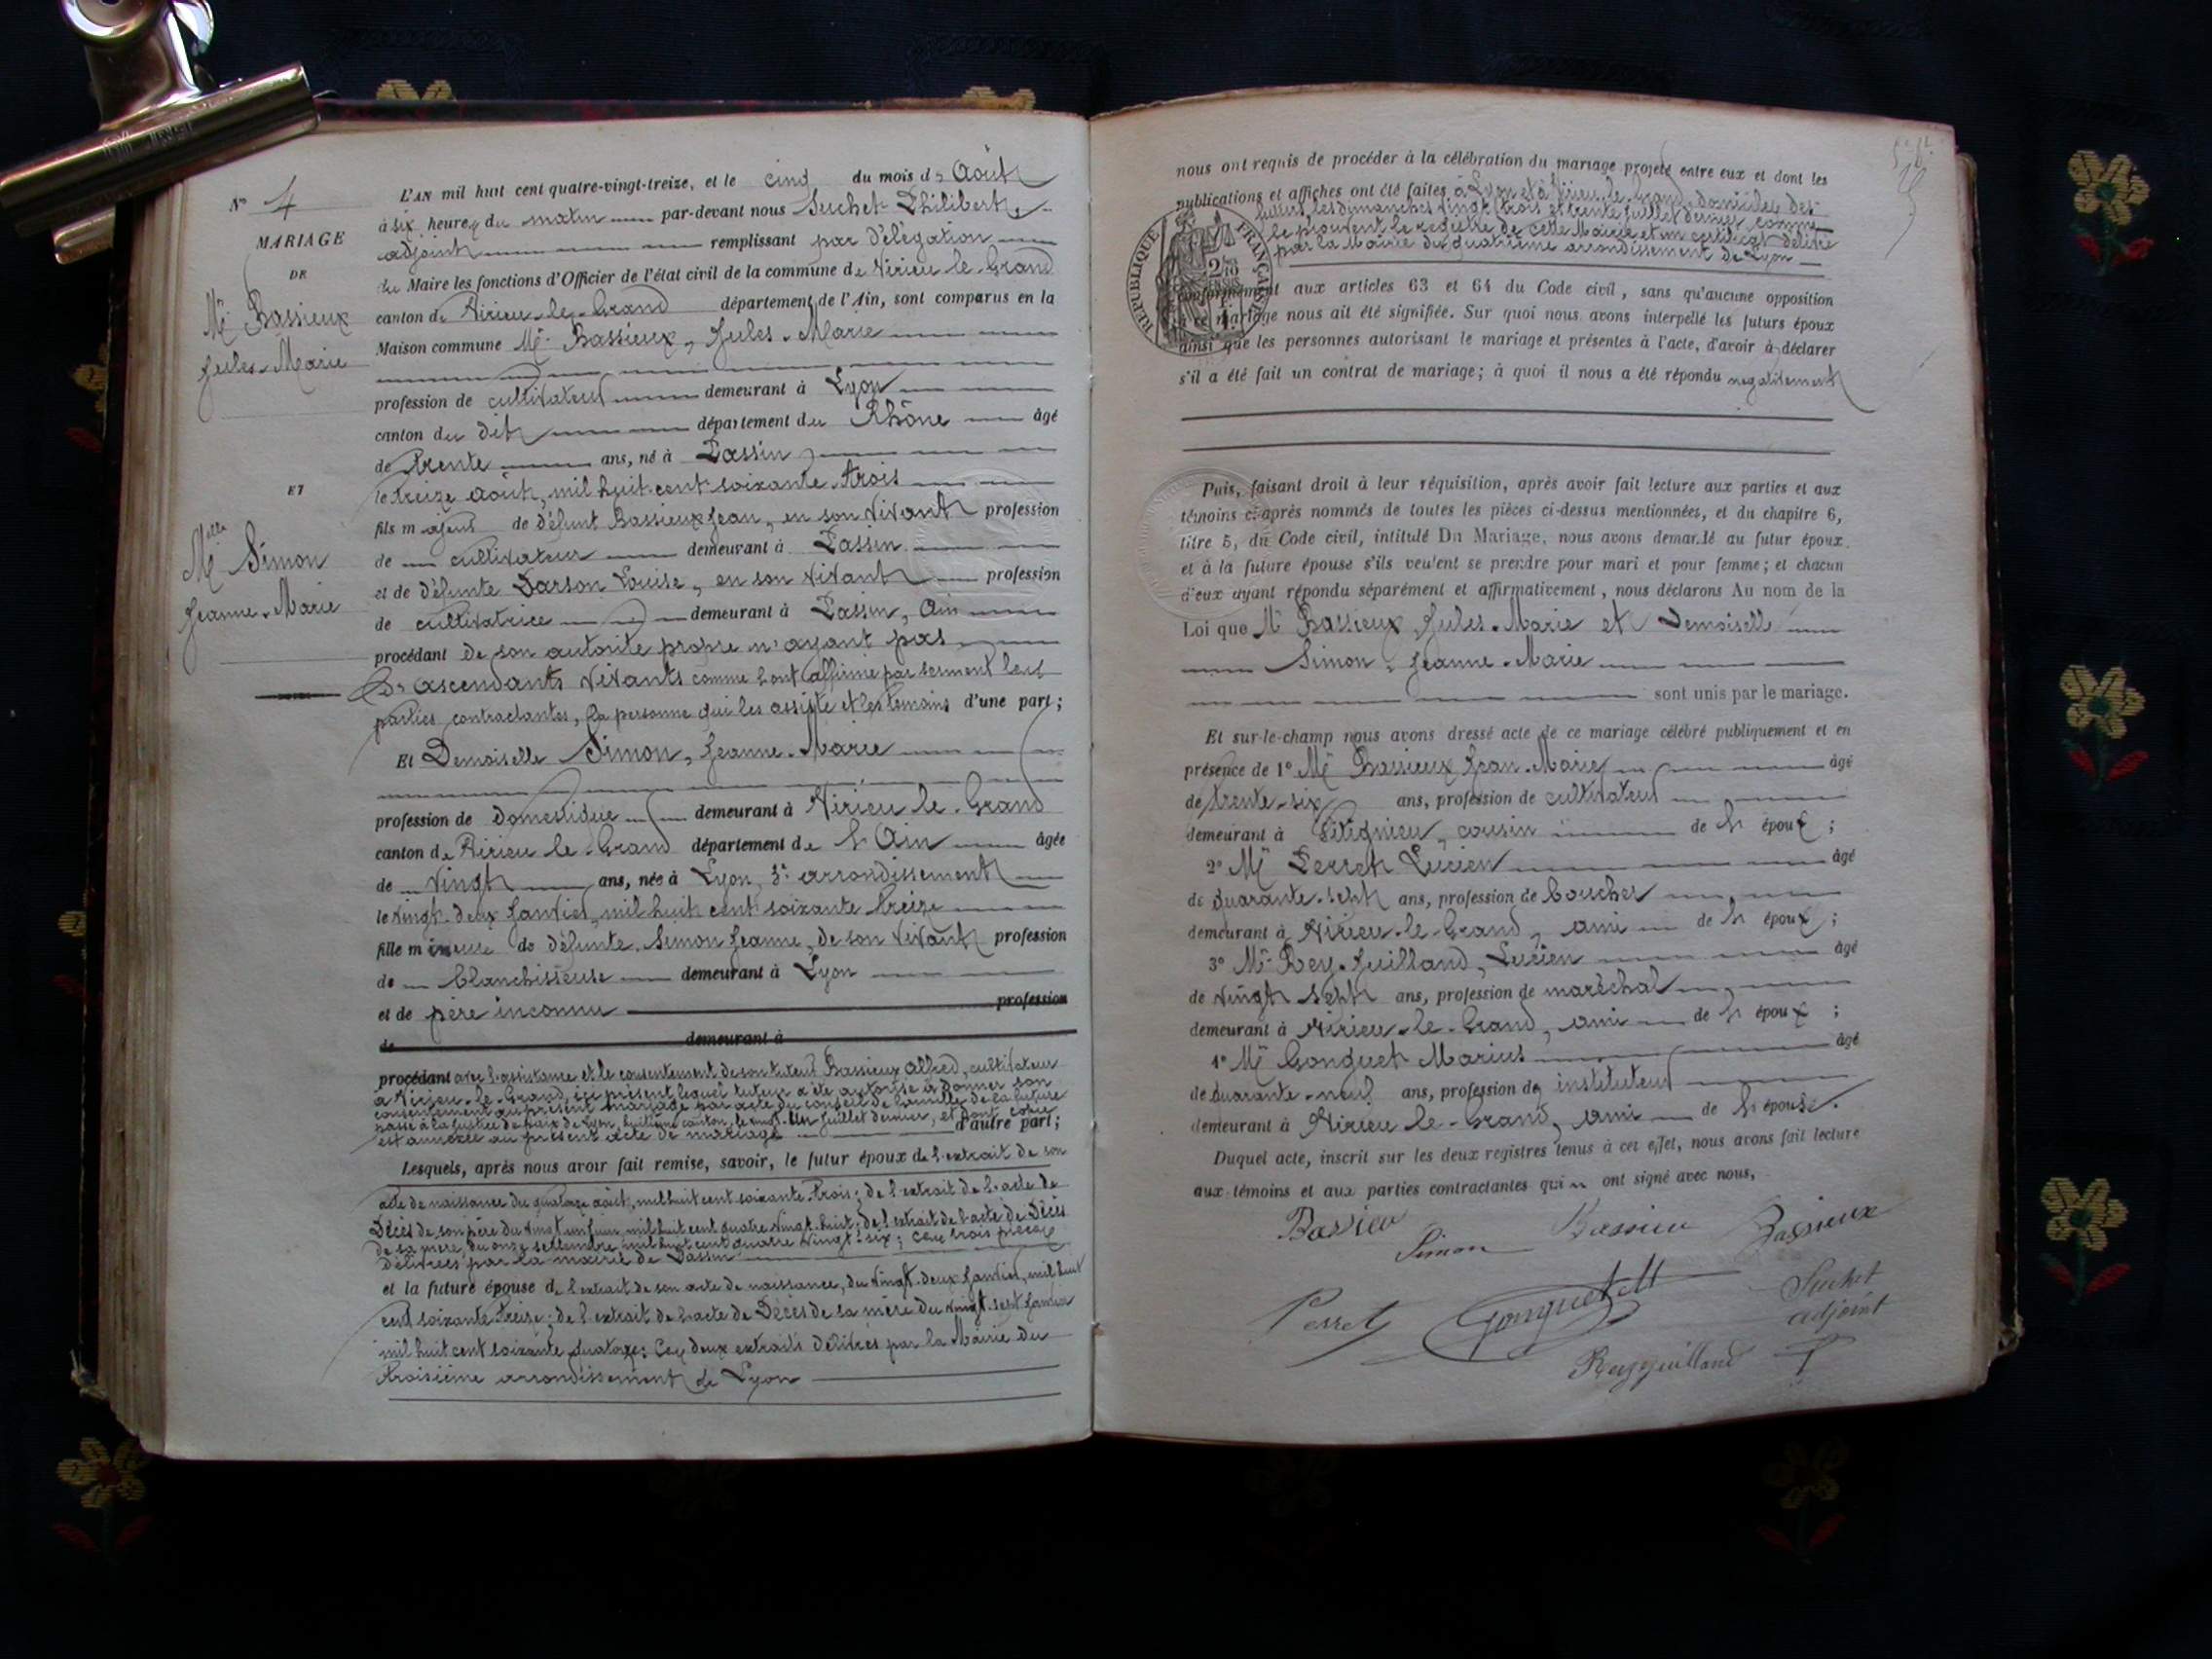 N° 4
MARIAGE
DE
Mr Bassieux
Jules-Marie
ET
Melle Simon
Jeanne-Marie
L'AN mil huit cent quatre-vingt-treize, et le cinq du mois de Août
à six heures du matin par-devant nous Suchet Philibert,
adjoint remplissant par délégation
du Maire les fonctions d'Officier de l'état civil de la commune de Virieu-le-Grand
canton de Virieu-le-Grand département de l'Ain, sont comparus en la
Maison commune Mr Bassieux, Jules-Marie
profession de cultivateur demeurant à Lyon
canton du dit département du Rhône âgé
de trente ans, né à Passin,
le treize août, mil huit cent soixante-trois
fils majeur de défunt Bassieux Jean, en son vivant profession
de cultivateur demeurant à Passin
et de défunte Darson Louise, en son vivant profession
de cultivatrice demeurant à Passin, Ain
procédant de son autorité propre n'ayant pas
d'ascendants vivants comme l'ont affirmé par serment les
parties contractantes, la personne qui les assiste et les témoins d'une part;
Et Demoiselle Simon, Jeanne-Marie
profession de domestique demeurant à Virieu-le-Grand
canton de Virieu-le-Grand département de l'Ain âgée
de vingt ans, née à Lyon, 3e arrondissement
le vingt-deux janvier, mil huit cent soixante treize
fille mineure de défunte Simon Jeanne, de son vivant profession
de blanchisseuse demeurant à Lyon
et de père inconnu profession
de demeurant à
procédant avec l'assistance et le consentement de son tuteur Bassieux Alfred, cultivateur
à Virieu-le-Grand, ici présent lequel tuteur a été autorisé à donner son
consentement au présent mariage par acte du conseil de famille de la future
passé à la justice de paix de Lyon, huitième canton, le vingt-un juillet dernier, et dont copie
est annexée au présent acte de mariage d'autre part;
Lesquels, après nous avoir fait remise, savoir, le futur époux de l'extrait de son
acte de naissance du quatorze août, mil huit cent soixante-trois; de l'extrait de l'acte de
décès de son père du vingt un juin mil huit cent quatre vingt-huit; de l'extrait de l'acte de décès
de sa mère, du onze septembre mil huit cent quatre vingt-six; ces trois pièces
délivrées par la mairie de Passin
et la future épouse de l'extrait de son acte de naissance, du vingt-deux janvier, mil huit
cent soixante treize; de l'extrait de l'acte de décès de sa mère du vingt-sept janvier
mil huit cent soixante quatorze; ces deux extraits délivrés par la Mairie du
troisième arrondissement de Lyon
nous ont requis de procéder à la célébration du mariage projeté entre eux et dont les
publications et affiches ont été faites à Lyon et à Virieu-le-Grand, domiciles des
futurs, les dimanches vingt-trois et trente juillet dernier, comme
le prouvent le registre de cette Mairie et un certificat délivré
par la Mairie du quatrième arrondissement de Lyon
conformément aux articles 63 et 64 du Code civil, sans qu'aucune opposition
à ce mariage nous ait été signifiée. Sur quoi nous avons interpellé les futurs époux
ainsi que les personnes autorisant le mariage et présentes à l'acte, d'avoir à déclarer
s'il a été fait un contrat de mariage; à quoi il nous a été répondu négativement
RÉPUBLIQUE FRANÇAISE
Puis, faisant droit à leur réquisition, après avoir fait lecture aux parties et aux
témoins ci-après nommés de toutes les pièces ci-dessus mentionnées, et du chapitre 6,
titre 5, du Code civil, intitulé Du Mariage, nous avons demandé au futur époux
et à la future épouse s'ils veulent se prendre pour mari et pour femme; et chacun
d'eux ayant répondu séparément et affirmativement, nous déclarons Au nom de la
Loi que Mr Bassieux, Jules-Marie et Demoiselle
Simon, Jeanne-Marie
sont unis par le mariage.
Et sur-le-champ nous avons dressé acte de ce mariage célébré publiquement et en
présence de 1° Mr Bassieux Jean-Marie âgé
de trente-six ans, profession de cultivateur
demeurant à Vitignieu, cousin de l'époux;
2° Mr Perret Lucien âgé
de quarante-sept ans, profession de boucher
demeurant à Virieu-le-Grand, ami de l'époux;
3° Mr Rey-Juilland, Lucien âgé
de vingt sept ans, profession de maréchal
demeurant à Virieu-le-Grand, ami de l'époux;
4° Mr Gonguet Marius âgé
de quarante-neuf ans, profession de instituteur
demeurant à Virieu-le-Grand, ami de l'épouse.
Duquel acte, inscrit sur les deux registres tenus à cet effet, nous avons fait lecture
aux témoins et aux parties contractantes qui ont signé avec nous,
Bassieu Simon Bassieu Bassieux
Perret Gonguet M Suchet
adjoint
Reyjuilland